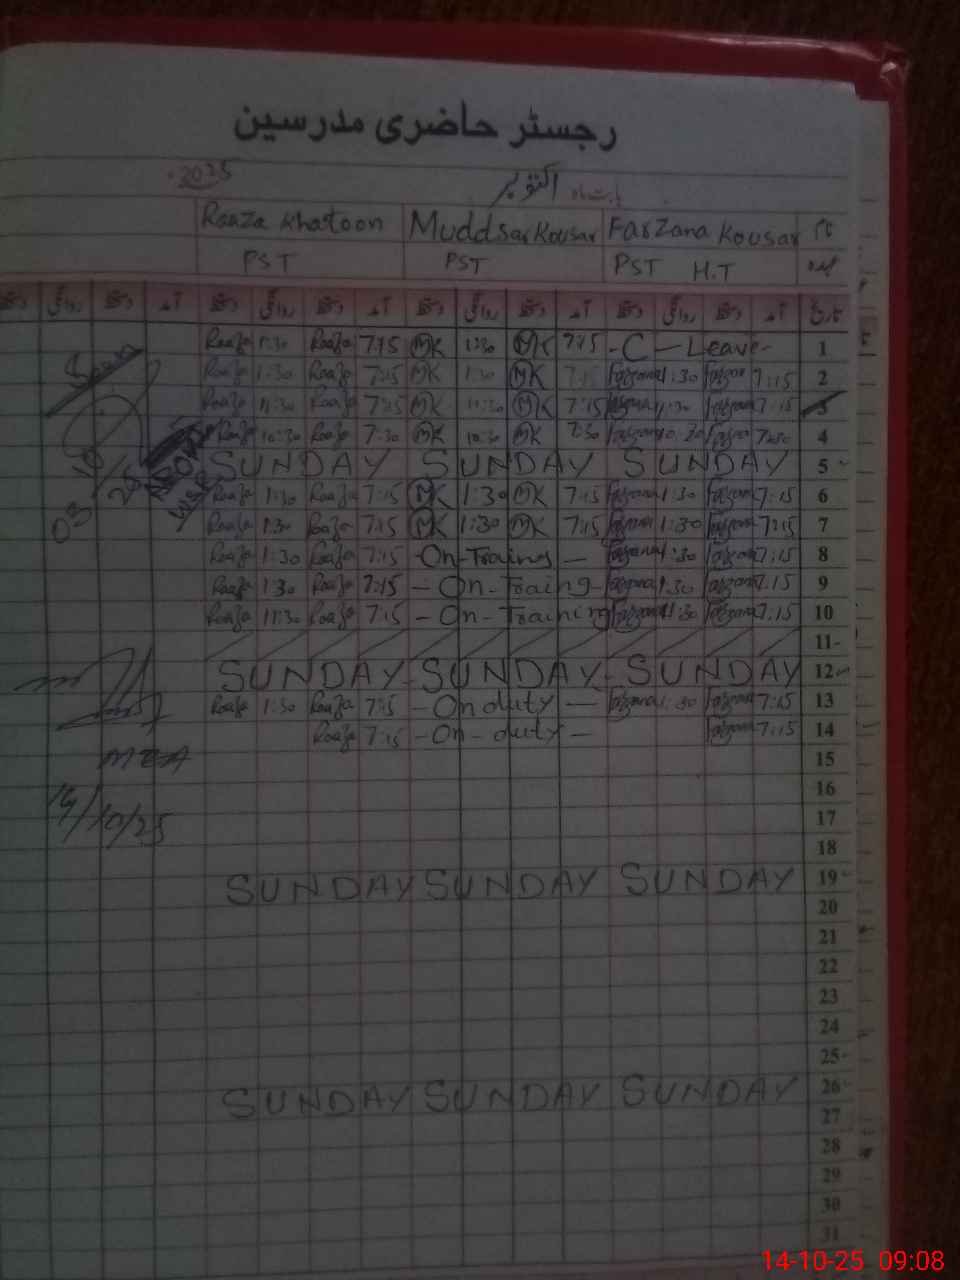 رجسٹر حاضری مدرسین
بابت ماہ اکتوبر 2025
نام Farzana Kousar Muddsar Kousar Roaza Khatoon
عہدہ PST H.T PST PST
تاریخ آمد دستخط روانگی دستخط آمد دستخط روانگی دستخط آمد دستخط روانگی دستخط آمد دستخط روانگی
Roaza 1:30 Roaza 7:15 MK 1:30 MK 7:15 - C - Leave - 1
Roaza 1:30 Roaza 7:15 MK 1:30 MK 7:15 Farzana 1:30 Farzana 7:15 2
Roaza 11:30 Roaza 7:15 MK 11:30 MK 7:15 Farzana 11:30 Farzana 7:15 3
Roaza 10:30 Roaza 7:30 MK 10:30 MK 7:30 Farzana 10:30 Farzana 7:30 4
SUNDAY SUNDAY SUNDAY 5
Roaza 1:30 Roaza 7:15 MK 1:30 MK 7:15 Farzana 1:30 Farzana 7:15 6
Roaza 1:30 Roaza 7:15 MK 1:30 MK 7:15 Farzana 1:30 Farzana 7:15 7
Roaza 1:30 Roaza 7:15 On-Traing - Farzana 1:30 Farzana 7:15 8
Roaza 1:30 Roaza 7:15 - On-Traing Farzana 1:30 Farzana 7:15 9
Roaza 11:30 Roaza 7:15 - On-Training Farzana 11:30 Farzana 7:15 10
11
SUNDAY - SUNDAY - SUNDAY 12
Roaza 1:30 Roaza 7:15 - On duty - Farzana 1:30 Farzana 7:15 13
Roaza 7:15 - On-duty - Farzana 7:15 14
15
16
17
18
SUNDAY SUNDAY SUNDAY 19
20
21
22
23
24
25
SUNDAY SUNDAY SUNDAY 26
27
28
29
30
31
03/10/25
MEA
14/10/25
14-10-25 09:08